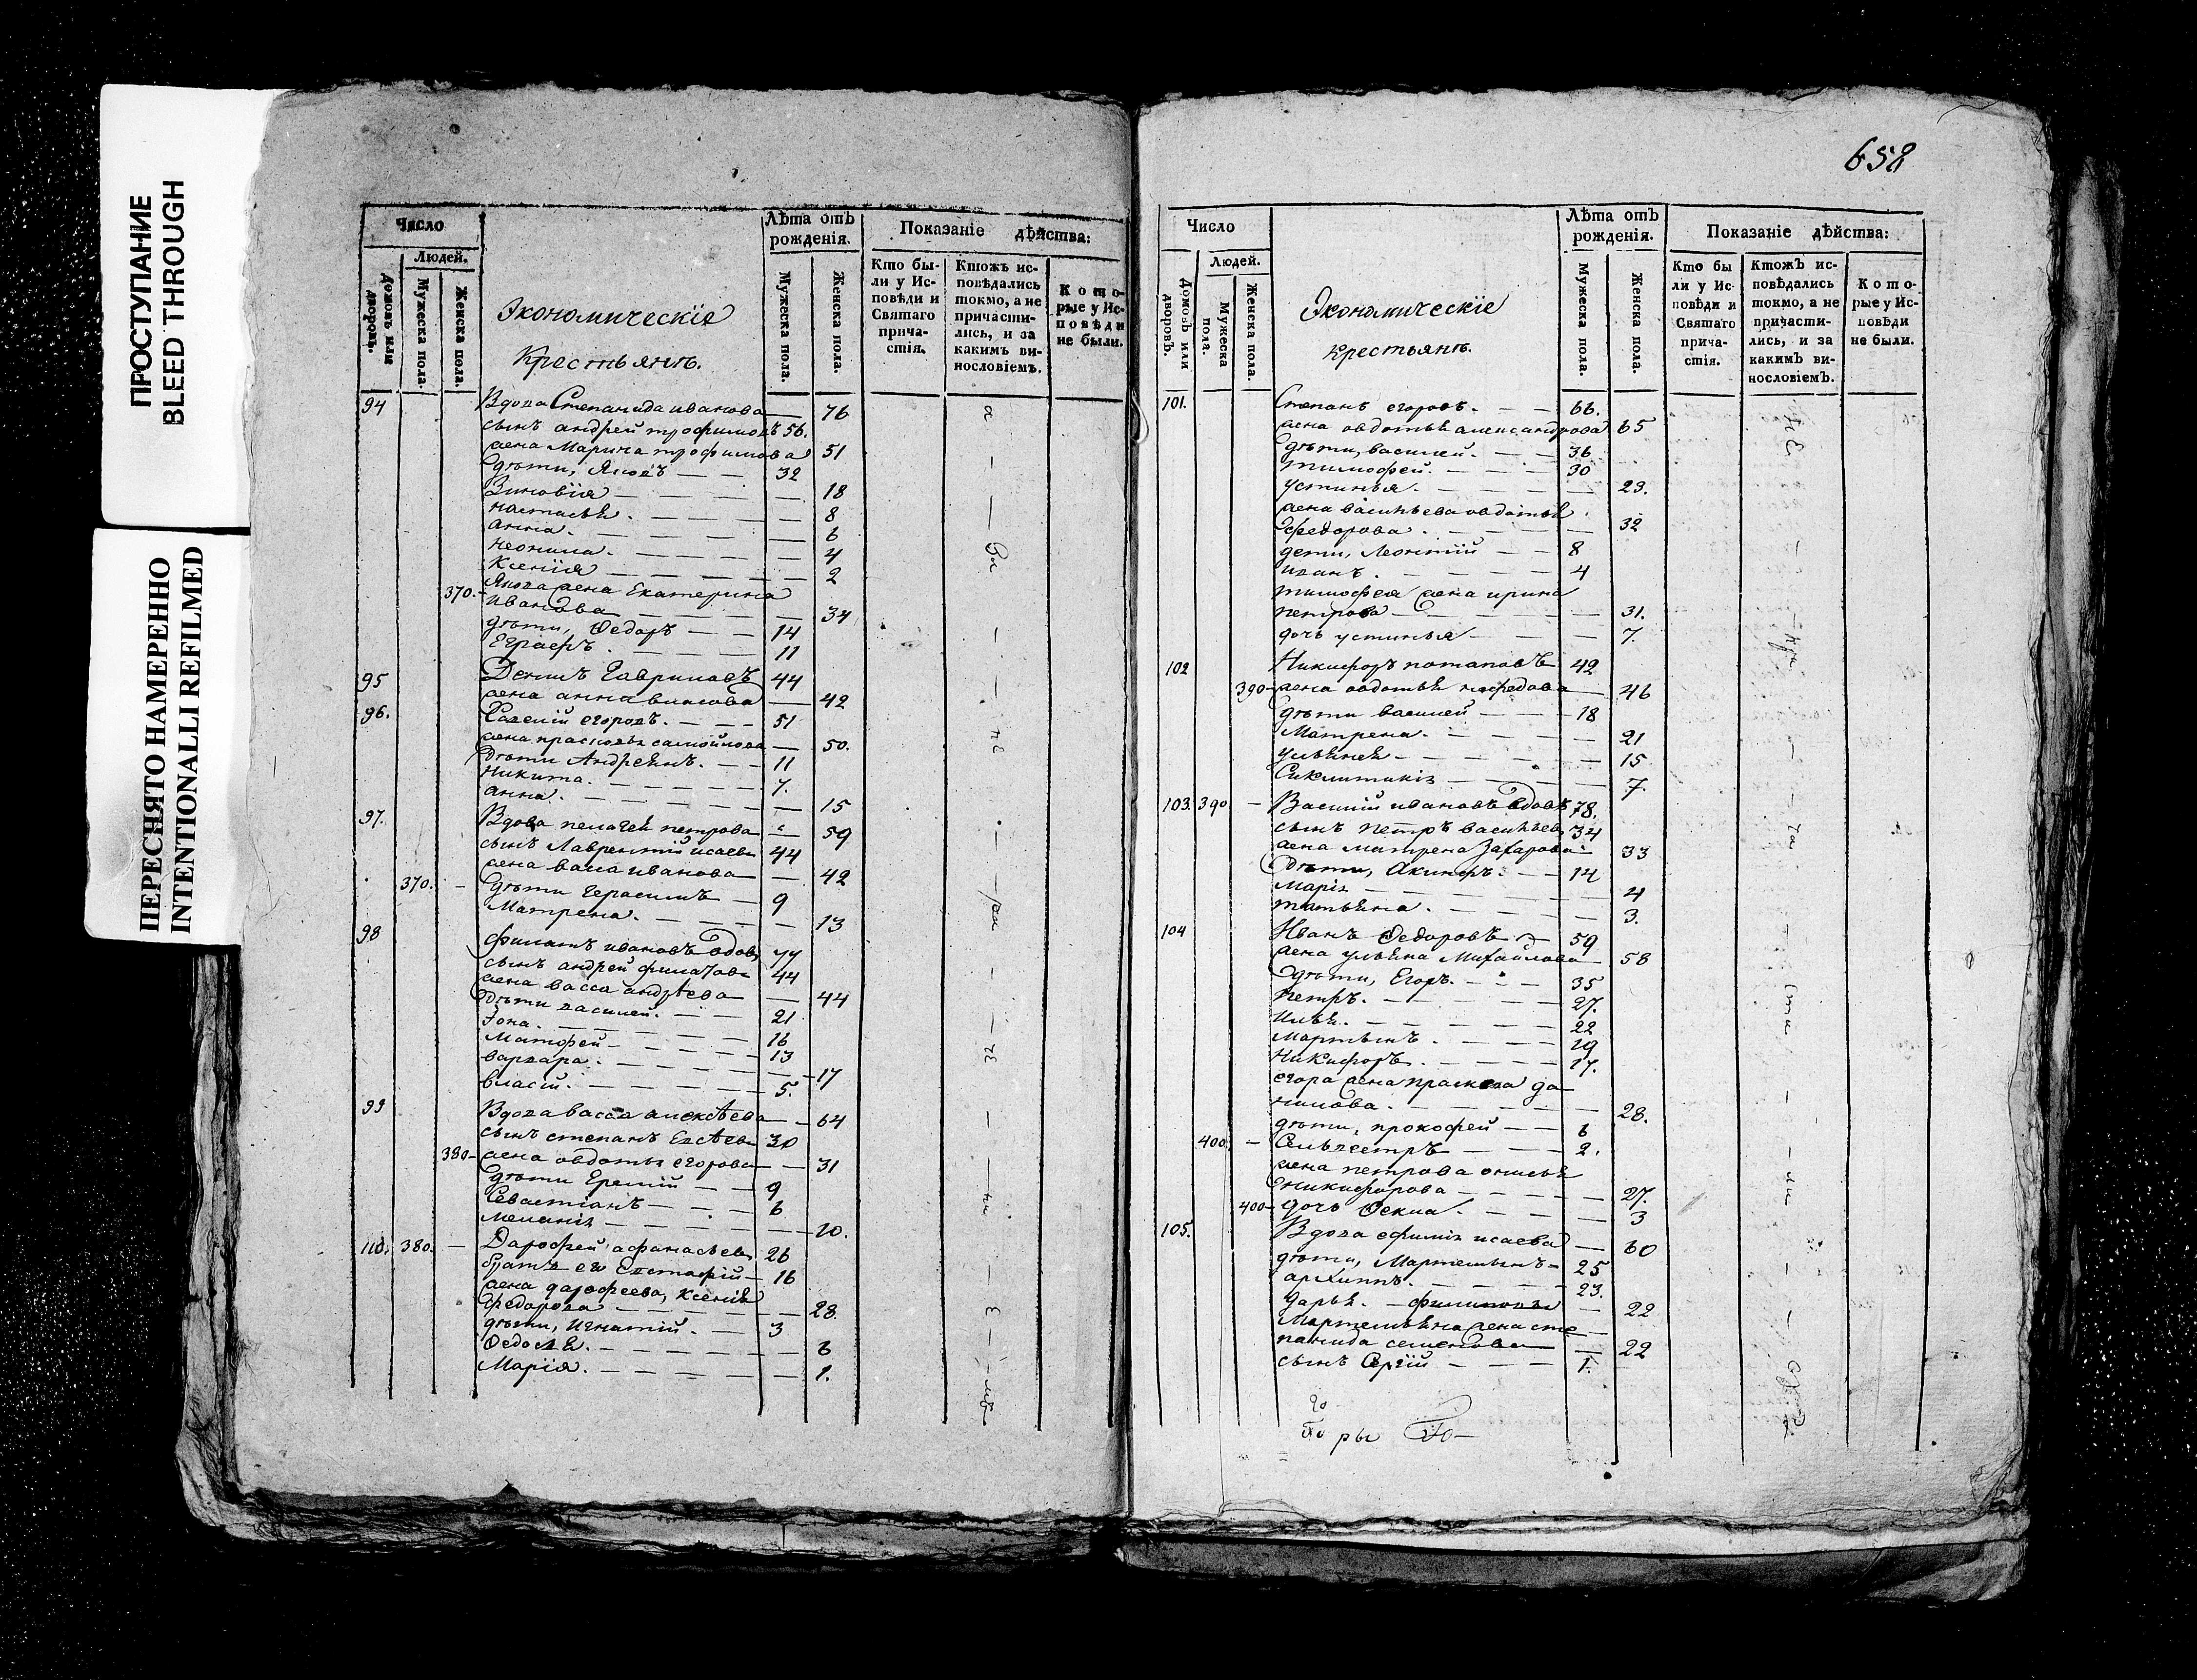 ПРОСТУПАНИЕ
BLEED THROUGH
ПЕРЕСНЯТО НАМЕРЕННО
INTENTIONALLI REFILMED
Число
Людей.
Домовъ или дворовъ.
Мужеска пола.
Женска пола.
Экономическіе
Крестьянъ.
Лѣта отъ рожденія.
Мужеска пола.
Женска пола.
Показаніе дѣйства:
Кто бы-
ли у Ис-
повѣди и
Святаго
прича-
стія.
Ктожъ ис-
повѣдались
токмо, а не
причасти-
лись, и за
какимъ ви-
нословіемъ.
Кото-
рые у Ис-
повѣди
не были.
94 Вдова Степанида иванова — 76
сынъ андрей трофимовъ 56.
жена Марина трофимова 51
дѣти, Яковъ — — 32
Зиновїя — — — 18
настасья. — — — 8
анна. — — — 6
неонила. — — — 4
Ксенїя — — — 2
370.- Якова жена Екатерина
Иванова — — — 34
дѣти, Ѳедоръ — — 14
Еграфъ. — — — 11
95 Денисъ Гавриловъ 44
жена анна власова — 42
96. Савелій егоровъ. — — 51
жена прасковья самойлова — 50.
дѣти Андреянъ. — — 11
Никита. — — — 7.
анна. — — — 15
97. Вдова пелагея петрова — 59
сынъ Лаврентій исаевъ 44
жена васса иванова — 42
370. — дѣти Герасимъ — 9
Матрена. — — — 13
98 Филатъ ивановъ вдовъ 77
сынъ андрей филатовъ 44
жена васса андрѣева — 44
дѣти василей. — — 21
Іона. — — — 16
Матфей — — — 13
варвара. — — — 17
власій. — — — 5.
99 Вдова васса алексѣева — 64
сынъ степанъ Евсѣевъ 30
380- жена овдотья егорова — 31
дѣти Еремій — — 9
Севастіанъ — — — 6
меланія — — — 10.
110. 380. — Дарофей афанасьевъ 26
братъ ег Евстафій — 16
жена дарофеева, Ксенія
Федорова — — — 28.
дѣти, Игнатій. — 3
Ѳедосья. — — — 6
Марія. — — — 1.
658
Число
Людей.
Домовъ или дворовъ.
Мужеска пола.
Женска пола.
Экономическїе
крестьянъ.
Лѣта отъ рожденія.
Мужеска пола.
Женска пола.
Показаніе дѣйства:
Кто бы
ли у Ис-
повѣди и
Святаго
прича-
стія.
Ктожъ ис-
повѣдались
токмо, а не
причасти-
лись, и за
какимъ ви-
нословіемъ.
Кото-
рые у Ис-
повѣди
не были.
101. Степанъ егоровъ. — — 66.
жена овдотья александрова 65
дѣти, василей. — — 36
тимофей. — — — 30
устинья. — — — 23.
жена васильева овдотья
Федорова. — — — 32
дети, Леонтїй — — 8
иванъ. — — — 4
тимофея жена ирина
петрова — — — 31.
дочь устинья — — 7.
102 Никифоръ потаповъ 42
390- жена овдотья — 46
дѣти василей — — 18
Матрена. — — — 21
ульянея — — — 15
Сиклитикія — — — 7.
103. 390 — Василій ивановъ вдовъ 78.
сынъ петръ васильевъ 34
жена матрена Захарова 33
дѣти, Акимъ. — — 14
марія — — — 4
татьяна. — — — 3.
104 Иванъ Ѳедоровъ — 59
жена ульяна Михайлова 58
дѣти, Егоръ. — — 35
петръ. — — — 27.
илья. — — — 22
мартынъ. — — — 19
Никифоръ. — — — 17.
егора жена прасковя да
нилова. — — — 28.
дѣти, прокофей — — 6
400. — Сельвестръ — — — 2.
жена петрова анисья
никифорова — — — 27.
400- дочь Фекла. — — — 3
105. Вдова ефимія исаева — 60
дѣти, Мартемьянъ — 25
архиппъ. — — — 23.
дарья. — 22
Мартемьяна жена сте
панида семенова — 22
сынъ Сергій — — — 1.